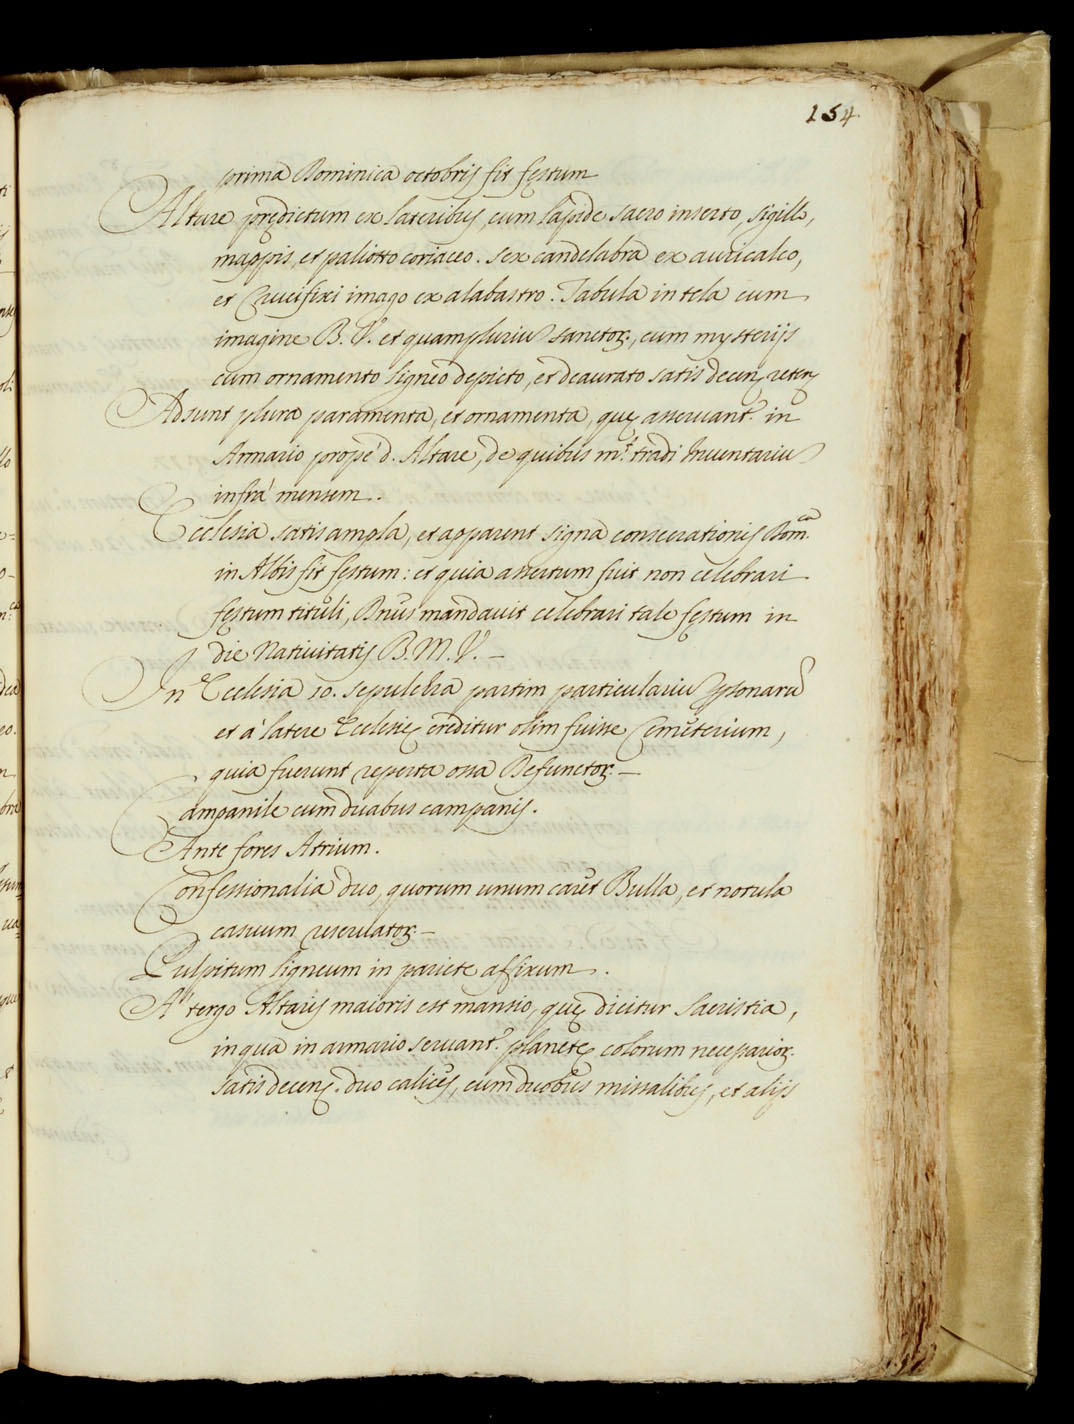 154.
prima Dominica octobris fit festum
Altare prędictum ex lateribus, cum lapide sacro inserto, sigillo,
mappis, et paliotto coriaceo. sex candelabra ex auricalco,
et Crucifixi imago ex alabastro. Tabula in tela cum
imagine B. V. et quampluriū sanctor., cum mysterijs
cum ornamento ligneo depicto, et deaurato satis decenʒ
Adsunt plura paramenta, et ornamenta, quę asseruant.r in
Armario propè d. Altare, de quibus m.t tradi Inuentariū
infrà mensem.
Ecclesia satis ampla, et apparent signa consecrationis Dom.ca
in Albis fit festum: et quia assertum fuit non celebrari
festum tituli, Dnūs mandauit celebrari tale festum in
die Natiuitatis B. M. V. –
In Ecclesia 10. sepulchra partim particulariū psonarū
et à latere Ecclesię creditur olim fuisse Cemeterium,
quia fuerunt reperta ossa Defunctor. –
Campanile cum duabus campanis.
Ante fores Atrium.
Confessionalia duo, quorum unum caret Bulla, et notula
casuum reseruator. –
Pulpitum ligneum in pariete affixum.
A' tergo Altaris maioris est mansio, quę dicitur Sacristia,
in qua in armario seruant.r planetę colorum necessarior.
satis decenʒ. duo calices, cum duobus missalibus, et alijs